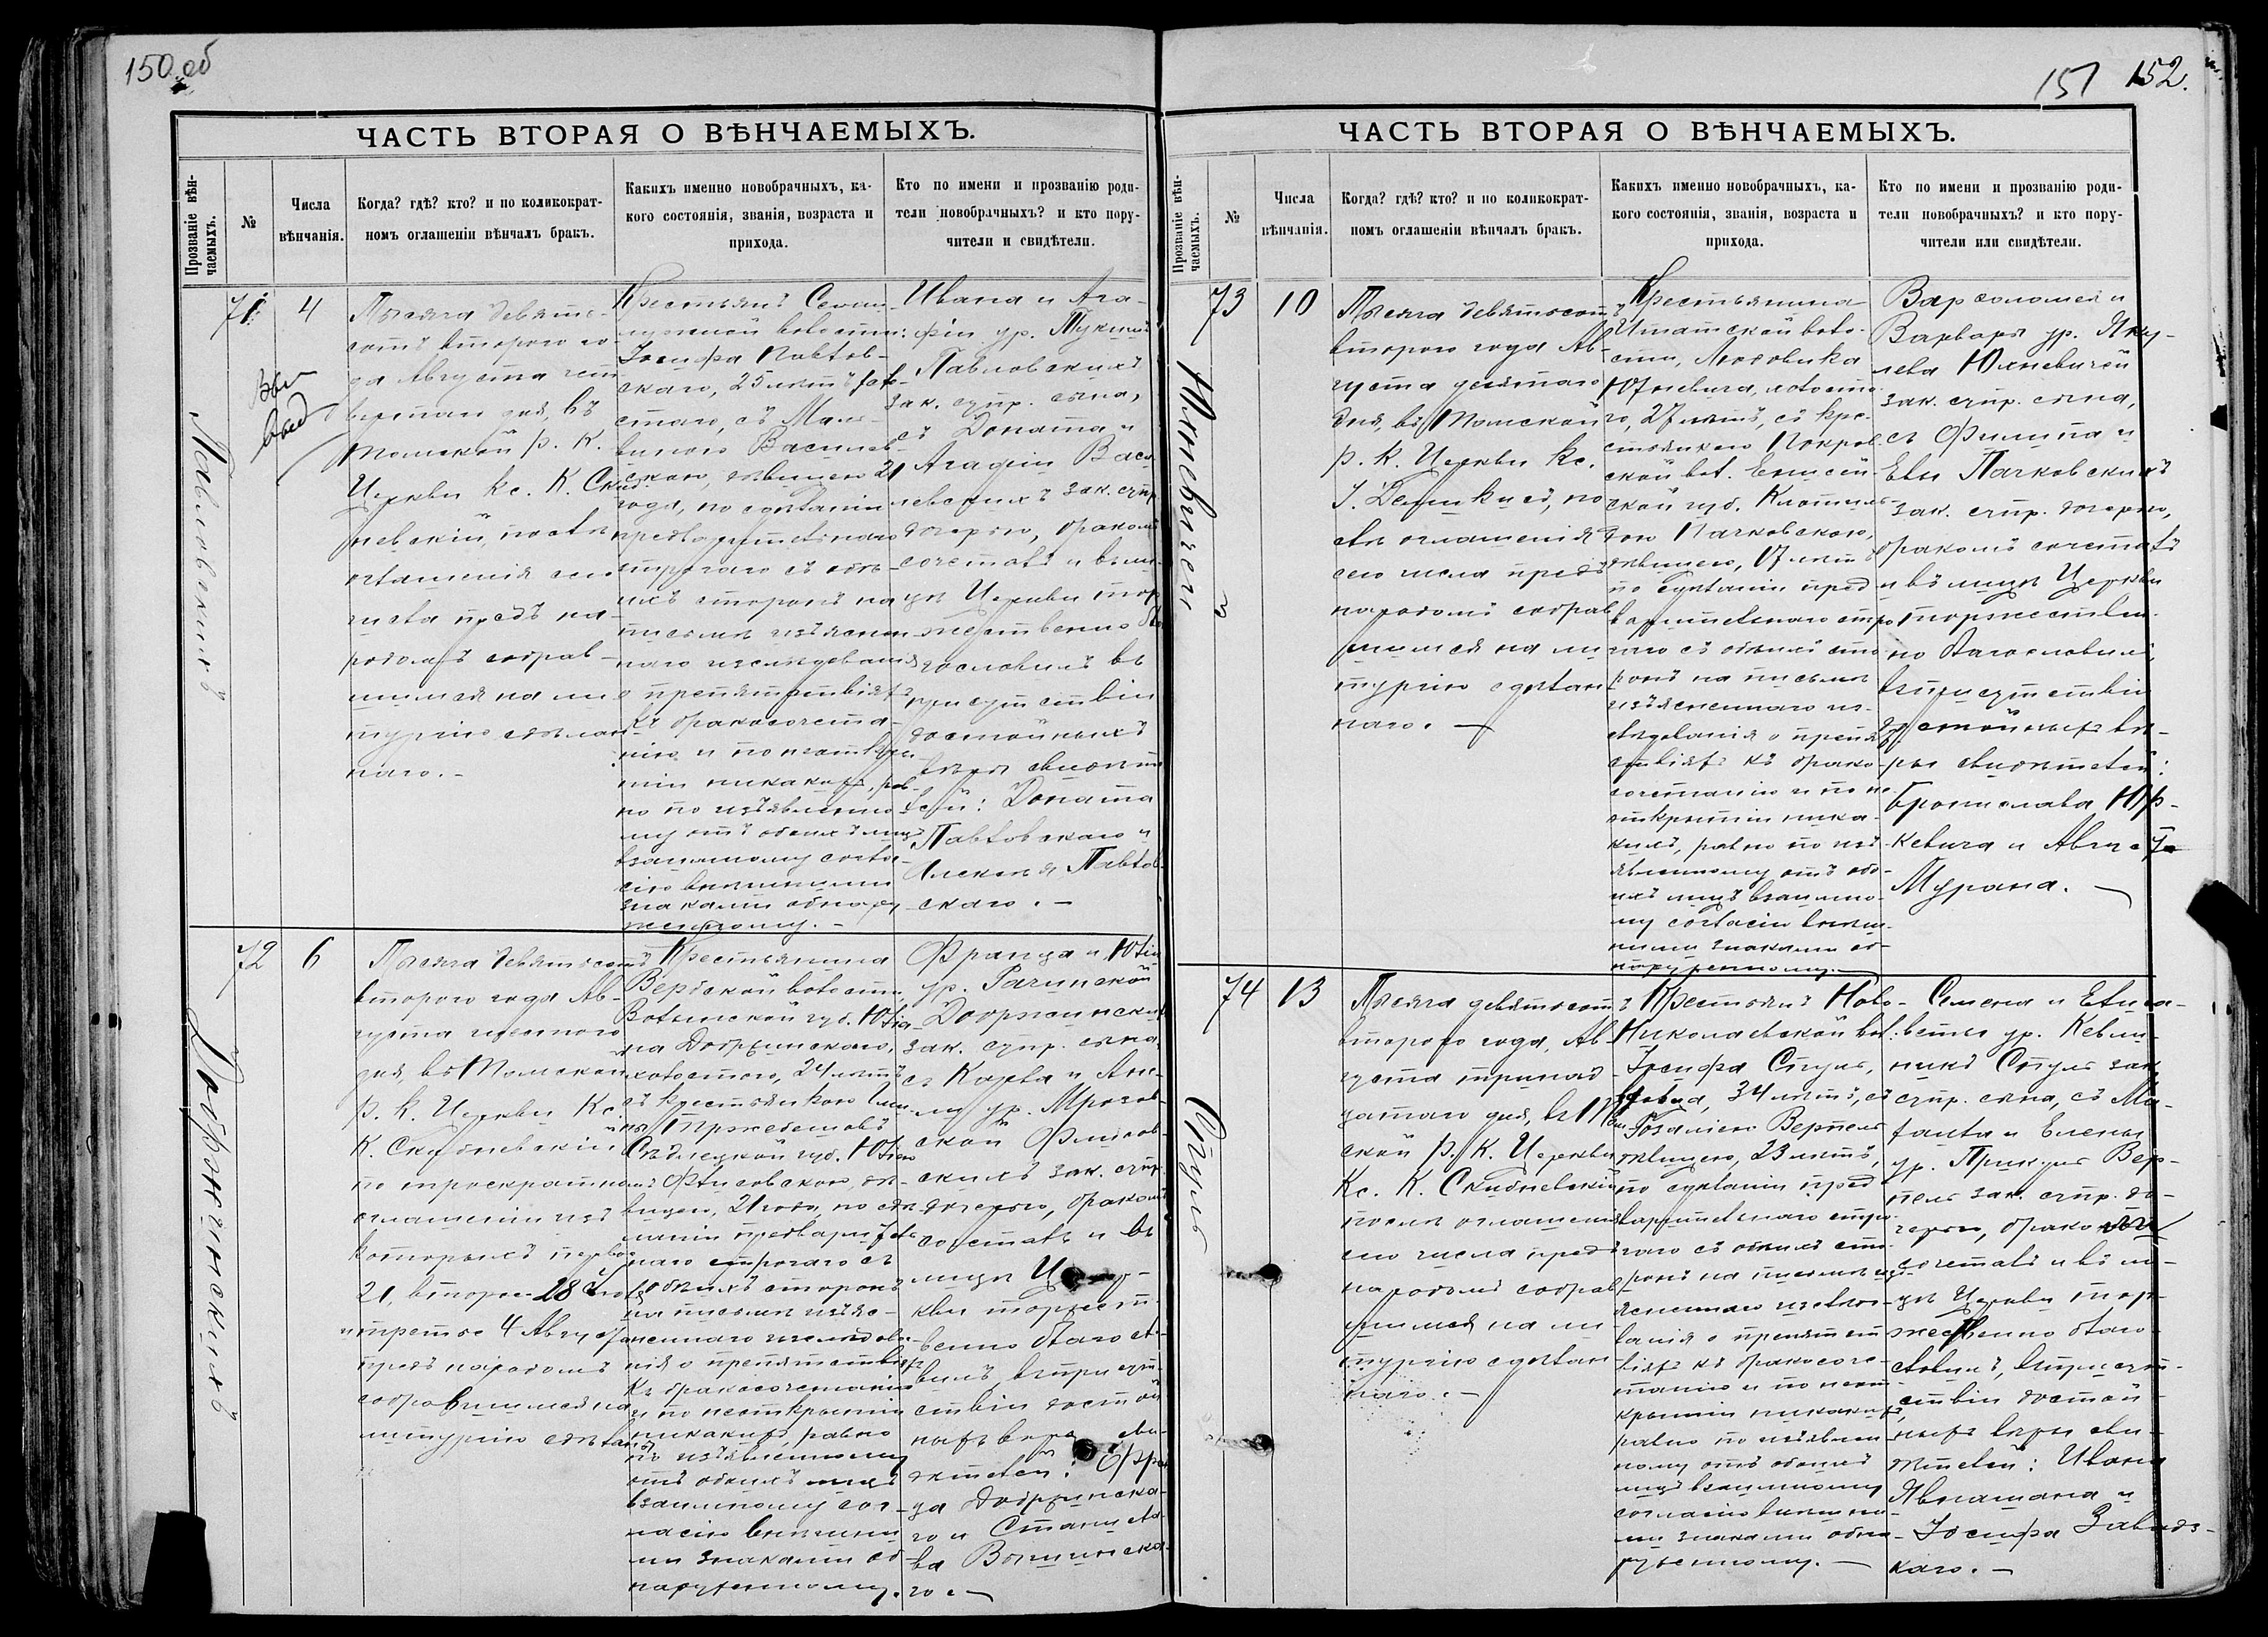 150 об
ЧАСТЬ ВТОРАЯ О ВѢНЧАЕМЫХЪ.
Прозваніе вѣн-
чаемыхъ.
№
Числа
вѣнчанія.
Когда? гдѣ? кто? и по коликократ-
номъ оглашеніи вѣнчалъ бракъ.
Какихъ именно новобрачныхъ, ка-
кого состоянія, званія, возраста и
прихода.
Кто по имени и прозванію роди-
тели новобрачныхъ? и кто пору-
чители и свидѣтели.
71
4
Тысяча девять-
сотъ второго го-
да Августа чет
вертаго дня, въ
Томской р. К.
Церкви кс. К. Скиб
невскій, послѣ
оглашенія сего
числа предъ на-
родомъ собрав-
шимся на ли-
тургію сдѣлан
наго.-
Іосифа Павлов-
скаго, 25 лѣтъ холо-
стаго, съ
Василев-
скою, дѣвицею 21
года, по сдѣланіи
предварительнаго
строгаго съ обѣ-
ихъ сторонъ на
письмѣ изъяснен
наго изслѣдованія
о препятствіяхъ
къ бракосочета-
нію и по неоткры-
тіи никакихъ, рав-
но по изъявленно-
му отъ обоихъ лицъ
взаимному согла-
сію внѣшними
знаками обнару-
женному.-
Ивана и Ага-
фіи ур.
Павловскихъ
зак. супр. сына,
съ Доната и
Агафіи Васи-
левскихъ зак. супр.
дочерью, бракомъ
сочеталъ и въ ли-
цѣ Церкви тор-
жественно бла-
гословилъ въ
присутствіи
достойныхъ
вѣры свидѣте-
лей: Доната
Павловскаго и
Алексѣя Павлов-
скаго.-
72
6
Добржинскихъ
Тысяча девятьсотъ
второго года Ав-
густа шестого
дня, въ Томской
р. К. Церкви Кс.
К. Скибневскій
по троекратномъ
оглашеніи изъ
которыхъ первое
21, второе 28 Іюля
и третье 4 Августа
предъ народомъ
собравшимся на
литургію сдѣлан
Крестьянина
Вербской волости,
Волынской губ. Юлі-
ана Добржинскаго,
холостого, 24 лѣтъ
съ крестьянкою
Сѣдлецкой губ. Юліею
дѣ-
вицею, 21 года, по сдѣ-
ланіи предваритель-
наго строгаго съ
обѣихъ сторонъ
на письмѣ изъяс-
неннаго изслѣдова-
нія о препятствіяхъ
къ бракосочетанію
и по неоткрытіи
никакихъ равно
по изъявленному
отъ обоихъ лицъ
взаимному сог-
ласію внѣшни-
ми знаками об-
наруженному.
Франца и Юліи
ур. Рачинской
Добржинскихъ
зак. супр. сына,
съ Карла и Ан-
ны ур. Мрозов-
ской
скихъ зак. супр.
дочерью, бракомъ
сочеталъ и въ
лицѣ Цер-
кви торжест-
венно благосло-
вилъ, въ присут-
ствіи достой
ныхъ вѣры сви-
дѣтелей: Фран-
ца Добржинска-
го и Станисла-
ва
го.-
151 152.
ЧАСТЬ ВТОРАЯ О ВѢНЧАЕМЫХЪ.
Прозваніе вѣн-
чаемыхъ.
№
Числа
вѣнчанія.
Когда? гдѣ? кто? и по коликократ-
номъ оглашеніи вѣнчалъ бракъ.
Какихъ именно новобрачныхъ, ка-
кого состоянія, званія, возраста и
прихода.
Кто по имени и прозванію роди-
тели новобрачныхъ? и кто пору-
чители или свидѣтели.
73
10
Тысяча девятьсотъ
второго года Ав-
густа десятаго
дня, въ Томской
р. К. Церкви Кс.
І. Демикисъ, по
слѣ оглашенія
сего числа предъ
народомъ собрав
шимся на ли
тургію сдѣлан
наго.-
Крестьянина
Ишатской воло-
сти, Людовика
Юхневича, холосто
го, 27 лѣтъ, съ кре-
стьянкою Покров
ской вол. Енисей
ской губ. Клотиль-
дою Пачковскою,
дѣвицею, 17 лѣтъ
по сдѣланіи пред
варительнаго стро
гаго съ обѣихъ сто
ронъ на письмѣ
изъясненнаго из-
слѣдованія о препят
ствіяхъ къ брако-
сочетанію и по не
открытіи ника-
кихъ, равно по изъ
явленному отъ обо-
ихъ лицъ взаимно-
му согласію внѣш-
ними знаками об-
наруженному.-
Варѳоломея и
Варвары ур. Яку-
лева Юхневичей
зак. супр. сына,
съ Филипа и
Евы Пачковскихъ
зак. супр. дочерью,
бракомъ сочеталъ
и въ лицѣ Церкви
торжествен-
но благословилъ,
въ присутствіи
достойныхъ вѣ-
ры свидѣтелей:
Бронислава Юр-
кевича и Августа
Мурана.-
74
13
Стуль
Тысяча девятьсотъ
второго года, Ав-
густа тринад-
цатаго дня, въ Том
ской р. К. Церкви
Кс. К. Скибневскій
послѣ оглашенія
сего числа предъ
народомъ собрав
шимся на ли
тургію сдѣлан
наго.-
Крестьянъ Ново-
Николаевской вол.
Іосифа Стуль,
вдовца, 34 лѣтъ, съ
Розаліею Верпель
дѣвицею, 23 лѣтъ,
по сдѣланіи пред
варительнаго стро-
гаго съ обѣихъ сто-
ронъ на письмѣ изъ-
ясненнаго изслѣдо-
ванія о препятст-
віяхъ къ бракосоче-
танію и по неот-
крытіи никакихъ,
равно по изъявлен
ному отъ обоихъ
лицъ взаимному
согласію внѣшни-
ми знаками обна-
руженному.-
Семена и Елиса-
веты ур.
Стуль зак.
супр. сына, съ
и Елены
ур. Вер-
пель зак. супр. до-
черью, бракомъ
сочеталъ и въ ли-
цѣ Церкви тор-
жественно благо-
словилъ, въ присут-
ствіи достой
ныхъ вѣры сви-
дѣтелей: Ивана
и
Іосифа Завадз-
каго.-